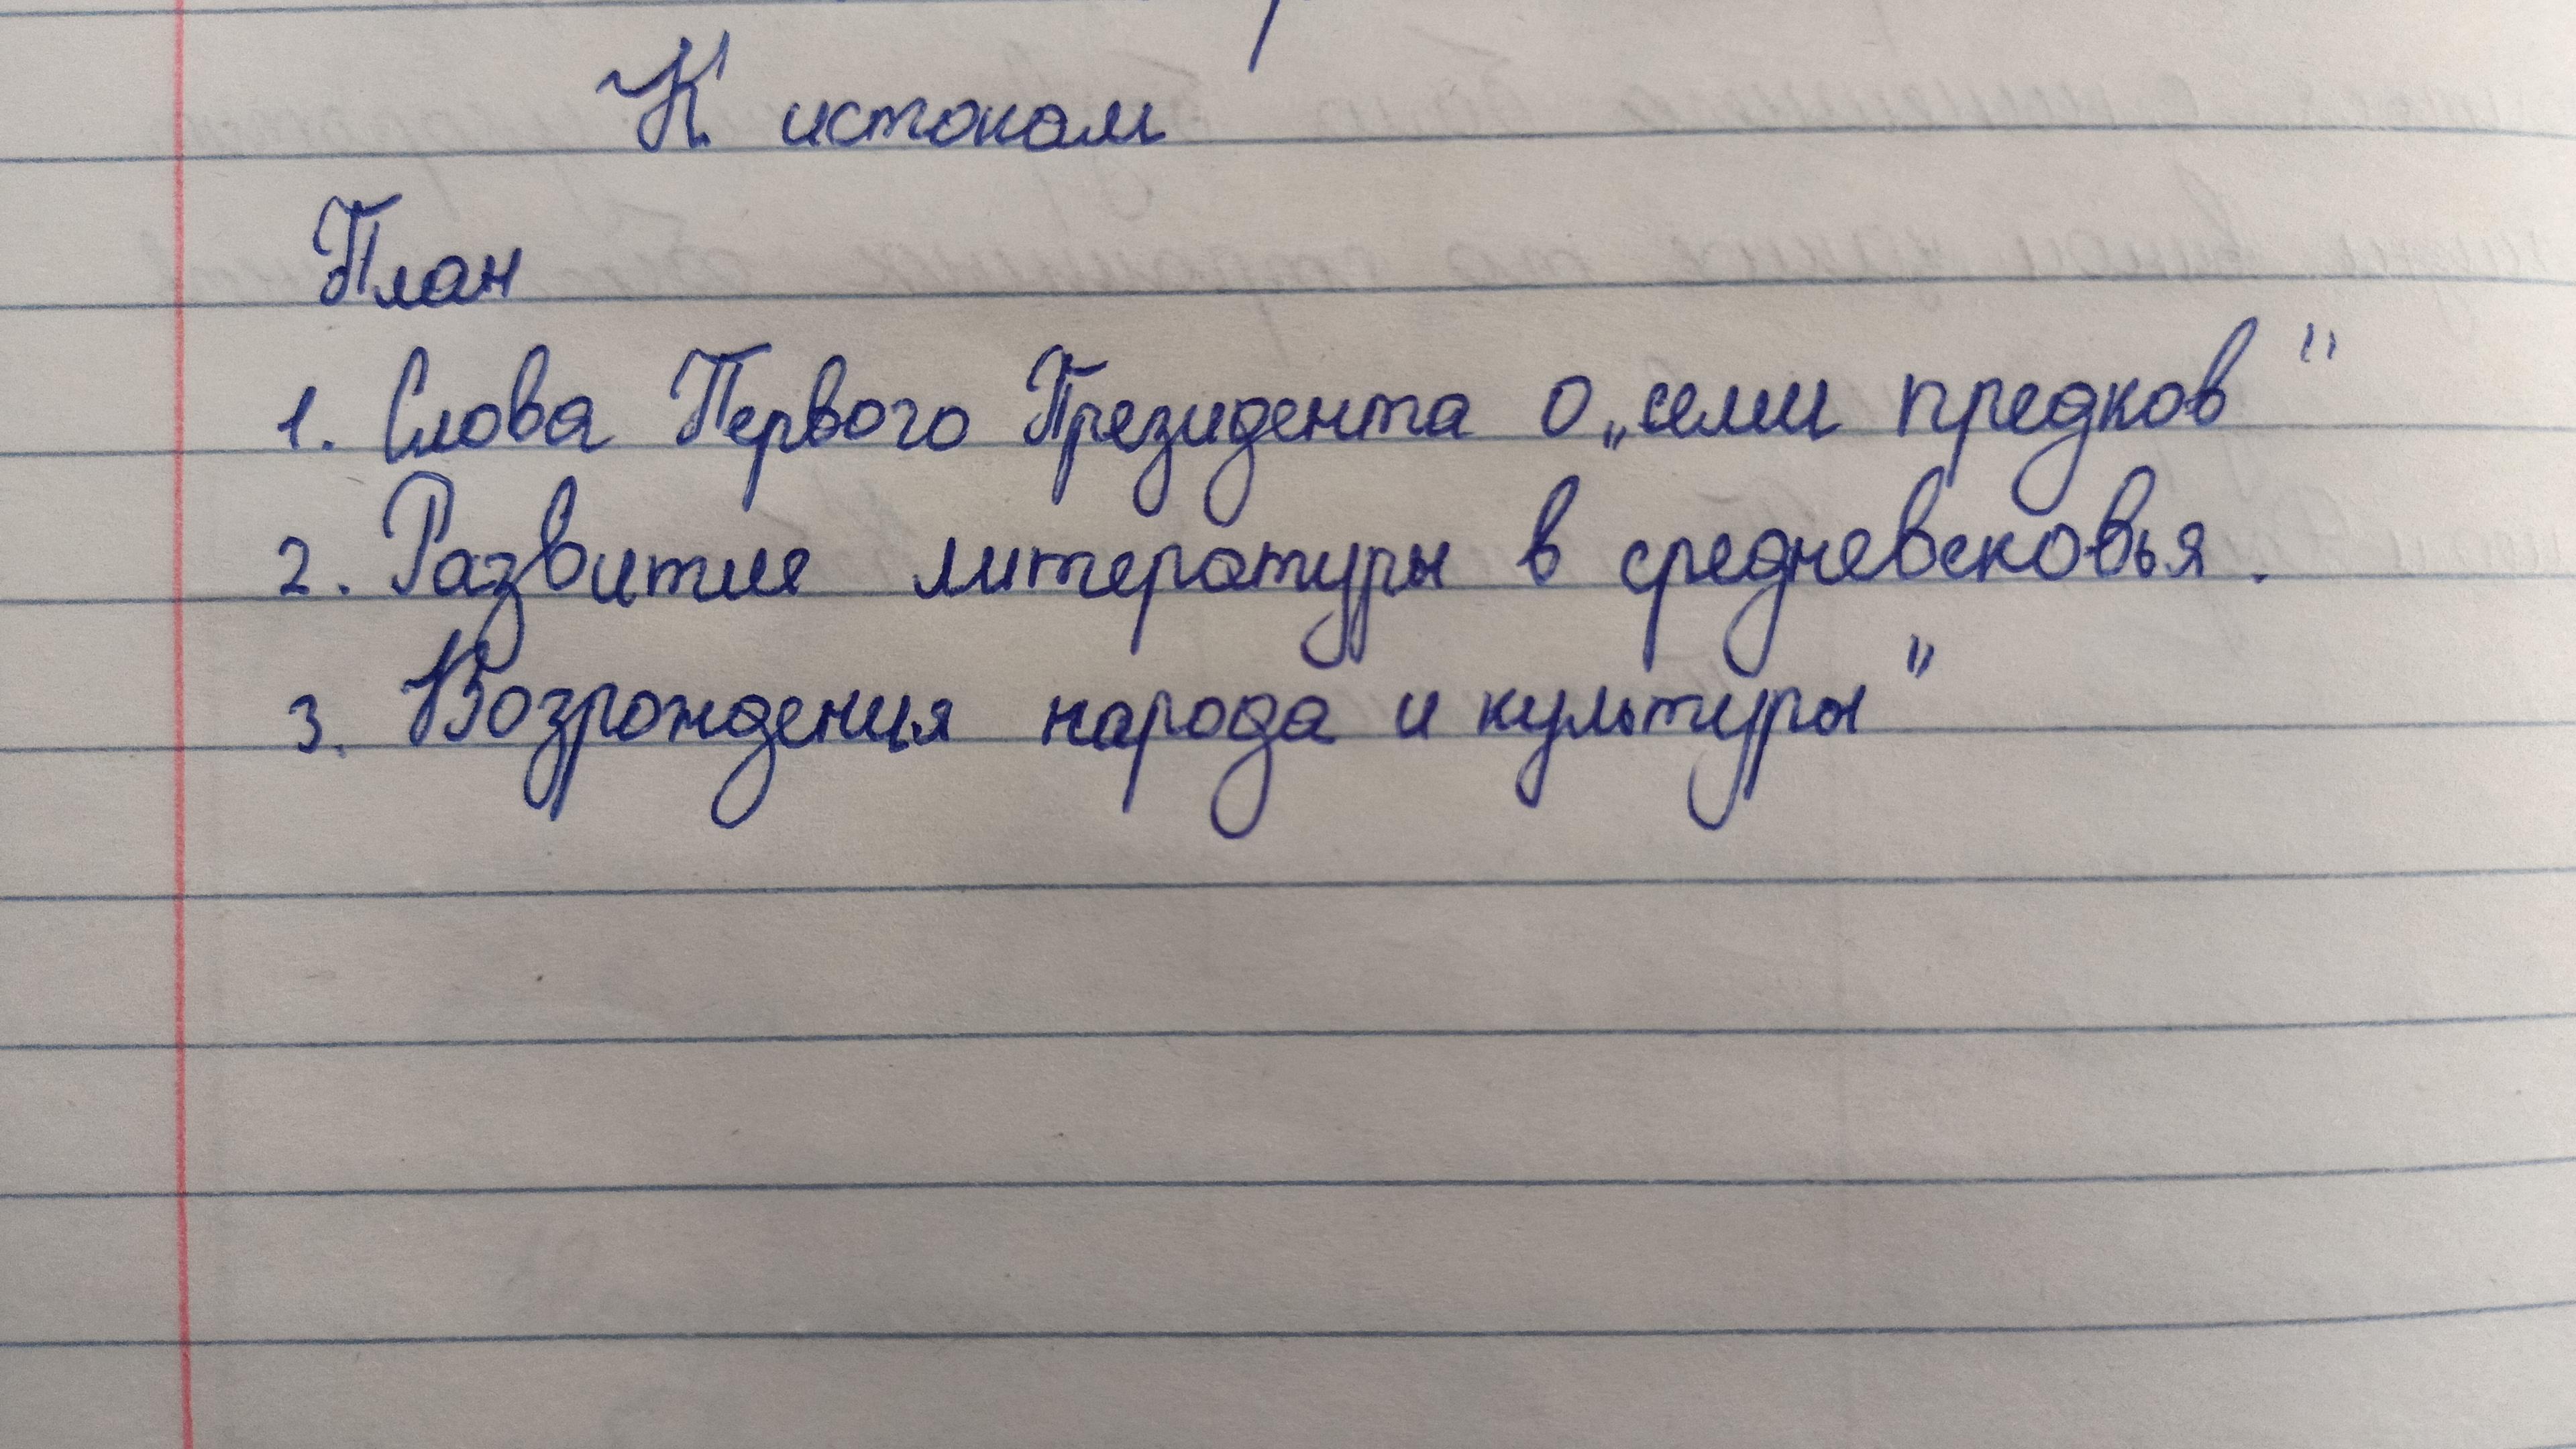 К истокам
План
1. Слова Первого Президента о „семи предков"
2. Развитие литературы в средневековья.
3. Возрождения народа и культуры"